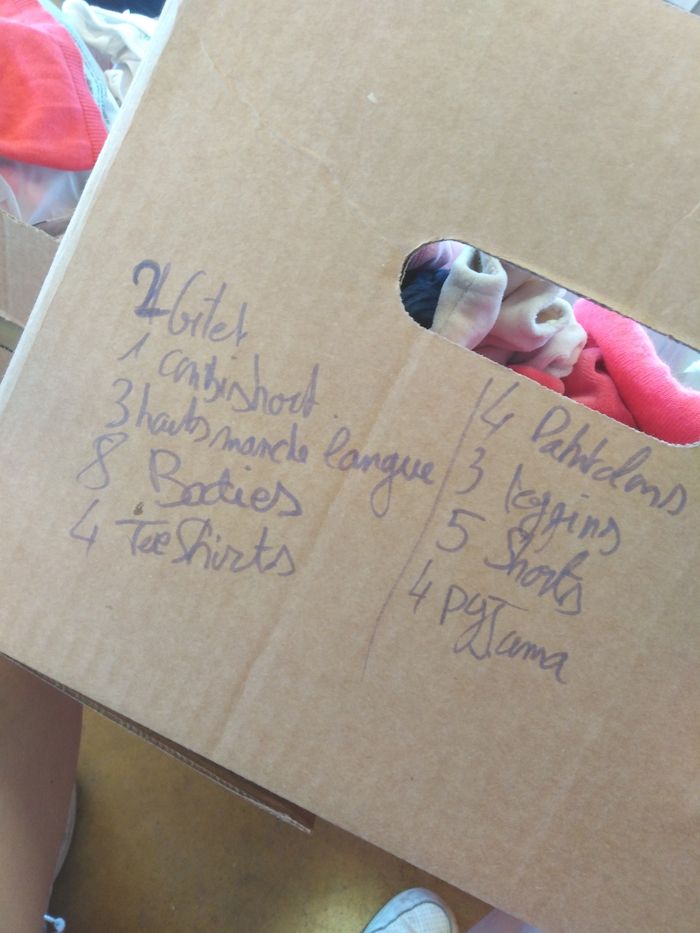 2 Gilet
1 combishort
3 hauts manche langue
8 Bodies
4 Tee Shirts
4 Pantalons
3 leggins
5 Shorts
4 pyJama